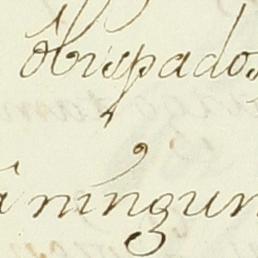 Obispados
â ningun